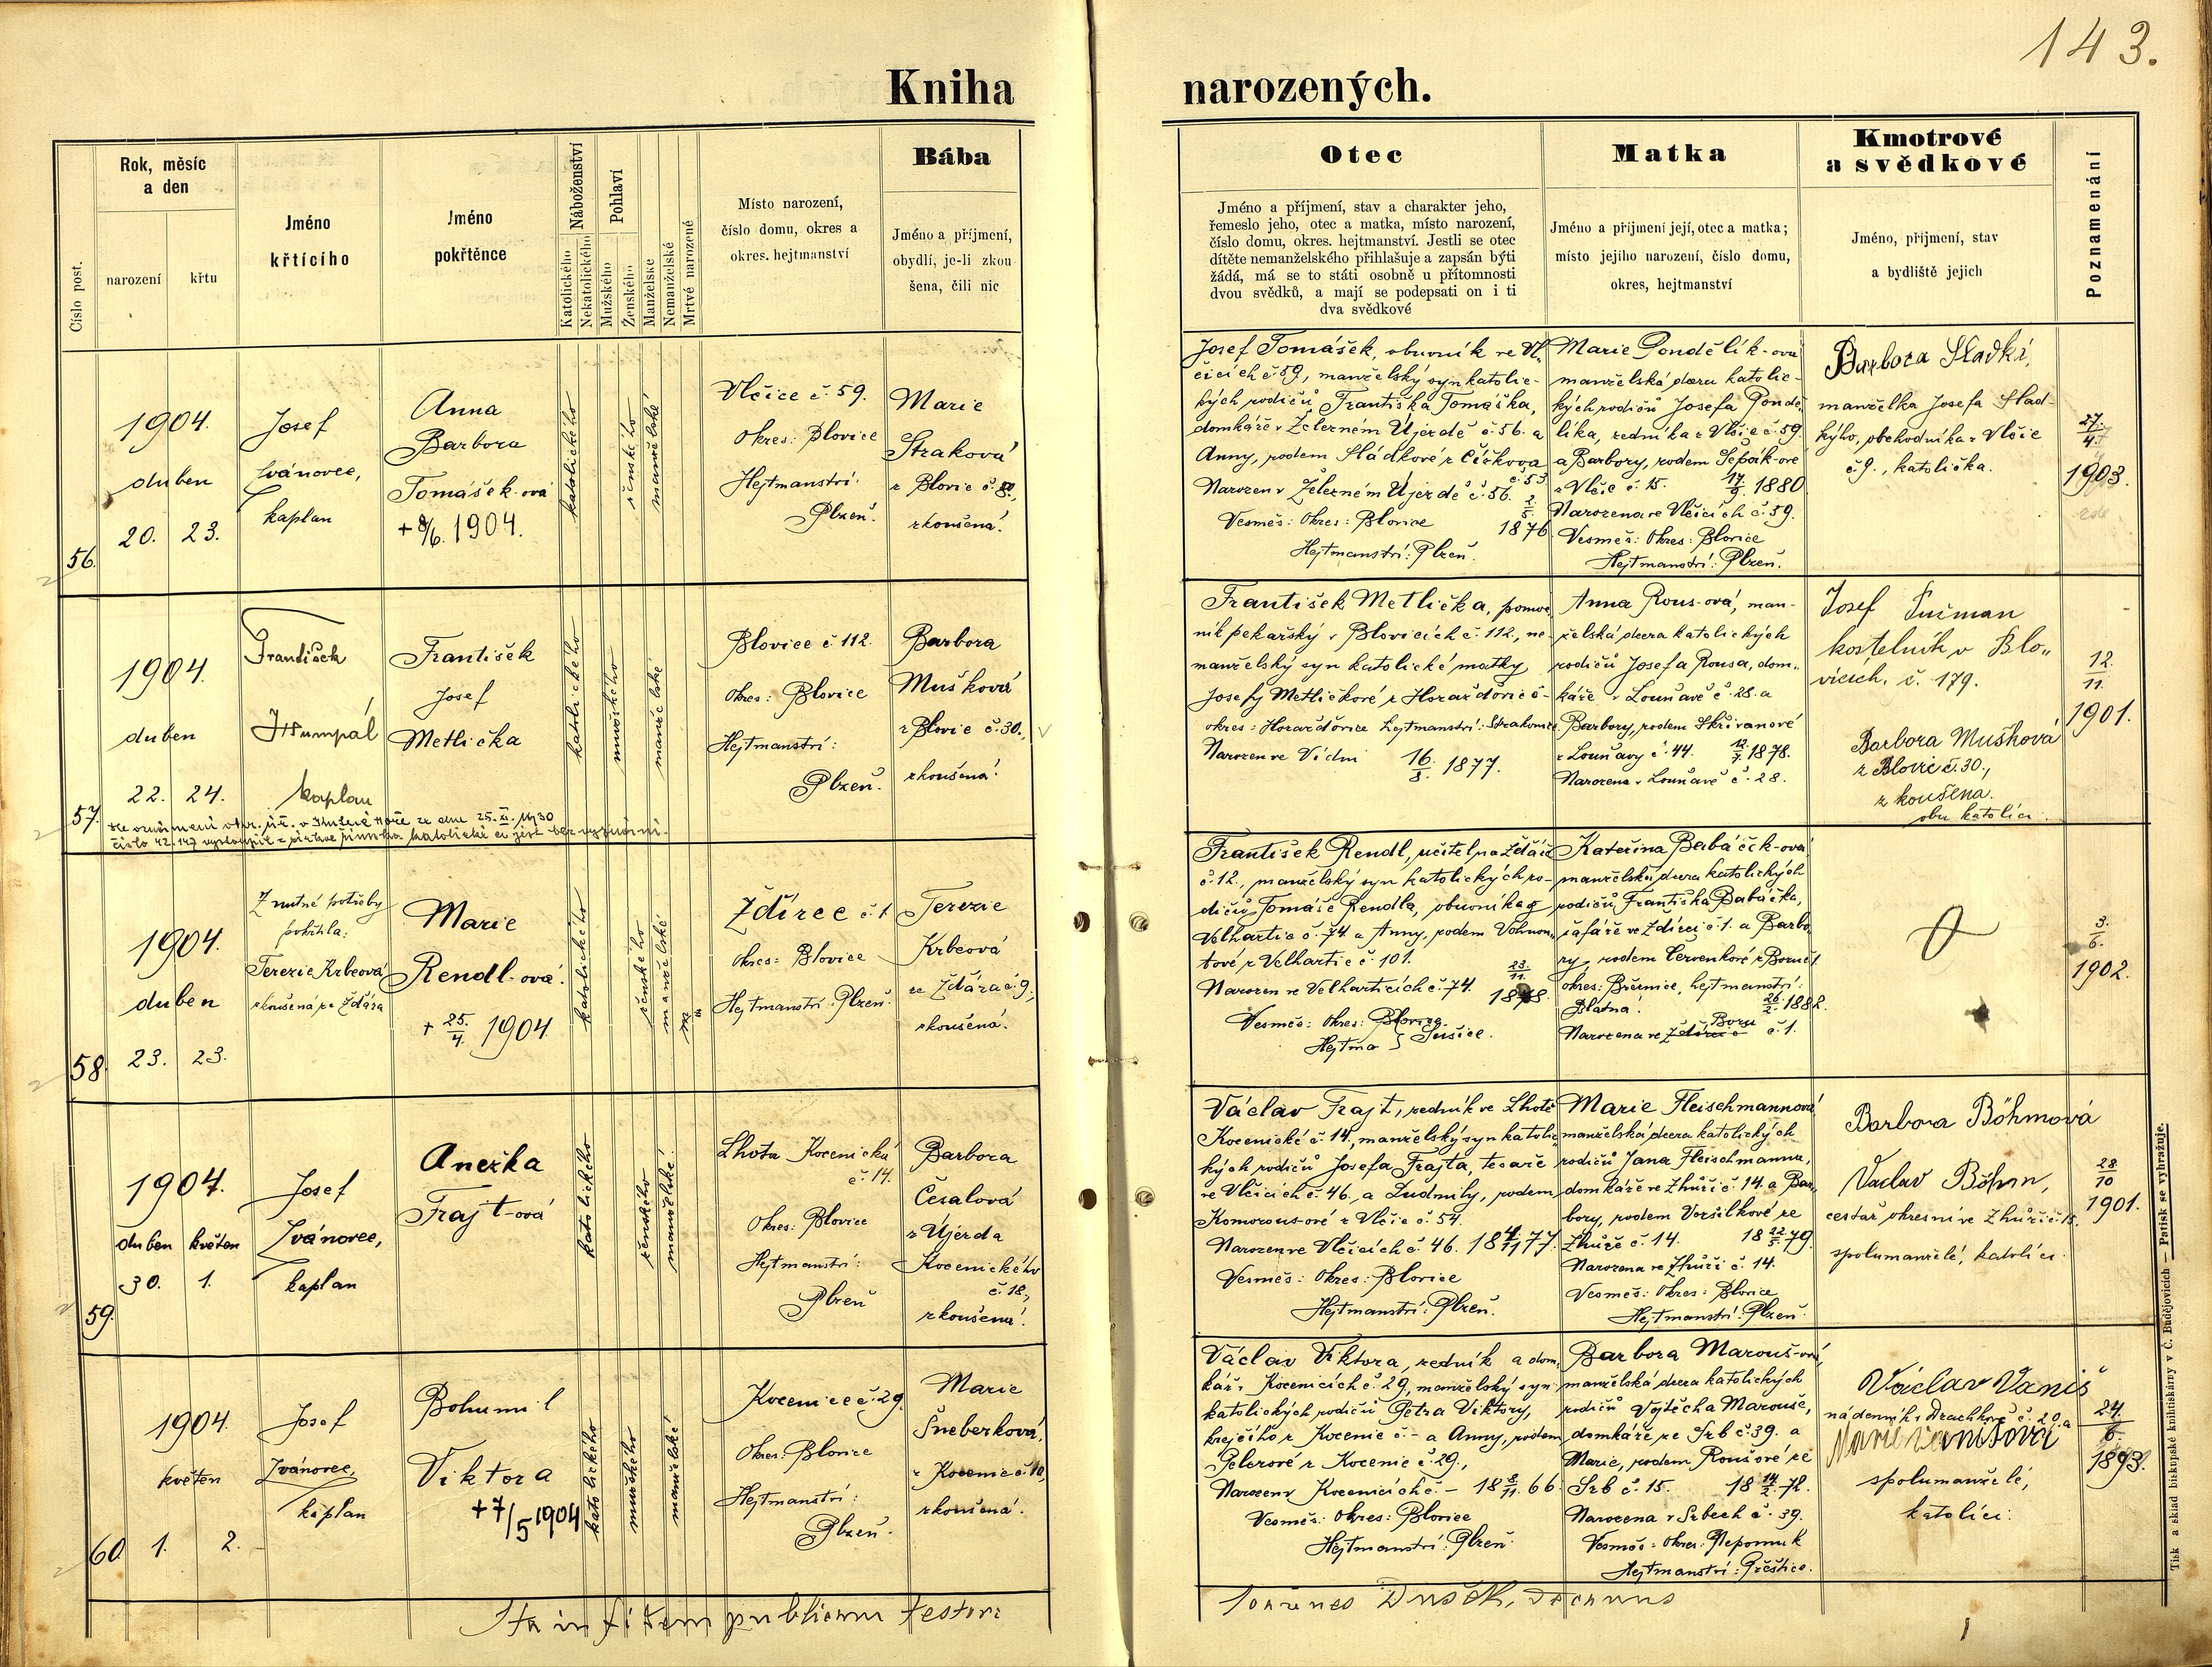 143.
Kniha narozených.
Číslo post.
Rok, měsíc
a den
narození
křtu
Jméno
křtícího
Jméno
pokřtěnce
Náboženství
Katolického
Nekatolického
Pohlaví
Mužského
Ženského
Manželské
Nemanželské
Mrtvé narozené
Místo narození,
číslo domu, okres a
okres. hejtmanství
Bába
Jméno a příjmení,
obydlí, je-li zkou
šena, čili nic
Otec
Jméno a příjmení, stav a charakter jeho,
řemeslo jeho, otec a matka, místo narození,
číslo domu, okres. hejtmanství. Jestli se otec
dítěte nemanželského přihlašuje a zapsán býti
žádá, má se to státi osobně u přítomnosti
dvou svědků, a mají se podepsati on i ti
dva svědkové
Matka
Jméno a příjmení její, otec a matka;
místo jejího narození, číslo domu,
okres, hejtmanství
Kmotrové
a svědkové
Jméno, příjmení, stav
a bydliště jejich
Poznamenání
56.
1904.
duben
20. 23.
Josef
Ivánovec,
kaplan
Anna
Barbora
Tomášek-ová
+ 8/6. 1904.
katolického
ženského
manželské
Vlčice č. 59.
Okres: Blovice
Hejtmanství:
Plzeň.
Marie
Straková
z Blovic
zkoušená.
Josef Tomášek, obuvník ve Vl-
čicích č 59, manželský syn katolic-
kých rodičů Františka Tomáška,
domkáře v Železném Újezdě č. 56. a
Anny, rodem Sládkové z Čížkova
č 53.
Narozen v Železném Újezdě č. 56. 2/5.
1876.
Vesměs: Okres: Blovice
Hejtmanství: Plzeň.
Marie Pondělík-ová
manželská dcera katolic-
kých rodičů Josefa Pondě-
líka, zedníka z Vlčic č. 59.
a Barbory, rodem
z Vlčic č. 15. 1880
Narozena ve Vlčicích č. 59.
Vesměs: Okres: Blovice
Hejtmanství: Plzeň.
Barbora Sladká,
manželka Josefa Slad-
kýho, obchodníka z Vlčic
č 9., katolička.
27./4.
1903.
57.
1904.
duben
22. 24.
František
kaplan
František
Josef
Metlička
katolického
mužského
manželské
Blovice č 112.
okres: Blovice
Hejtmanství:
Plzeň.
Barbora
Mušková
z Blovic č. 30.,
zkoušená.
František Metlička, pomoc-
ník pekařský v Blovicích č. 112., ne-
manželský syn katolické matky
Josefy Metličkové z Horažďovic č -
okres: Horažďovice hejtmanství: Strakonice.
Narozen ve Vídni 16/8. 1877.
Anna Rous-ová, man-
želská dcera katolických
rodičů Josefa Rousa, dom-
káře v Louňavě č. 28. a
Barbory, rodem Skřivanové
z Louňavy č. 44. 12/7. 1878.
Narozena v Louňavě č. 28.
Josef
kostelník v Blo-
vicích. č. 179.
Barbora Mušková
z Blovic č. 30.,
zkoušena.
oba katolíci.
12./11.
1901.
ze dne 25. XI. 1930
číslo 42.147 vystoupil z církve římsko katolické a jest bez vyznání.
58.
1904.
duben
23. 23.
Z nutné potřeby
pokřtila:
Terezie Krbcová
zkoušená ze Ždára
Marie
Rendl-ová.
+ 25./4. 1904
katolického
ženského
manželské
Ždírec č. 1
okres: Blovice
Hejtmanství: Plzeň.
Terezie
Krbcová
ze Ždára č 9,
zkoušená.
František Rendl, učitel na Ždáře
č. 12., manželský syn katolických ro-
dičů Tomáše Rendla, obuvníka z
Velhartic č. 74. a Anny, rodem Vohnou-
tové z Velhartic č. 101.
Narozen ve Velharticích č. 74. 23./11. 1878.
Vesměs: Okres: Blovice
Hejtma } Sušice.
Kateřina Babáčk-ová
manželská dcera katolických
rodičů Františka Babáčka,
šafáře ve Ždírci č. 1. a Barbo-
ry, rodem Červenkové z
okres: Březnice, hejtmanství:
Blatná. 26./2. 1882.
Narozena ve Ždírci č. 1.
3./6.
1902.
59.
1904.
duben květen
30. 1.
Josef
Ivánovec,
kaplan
Anežka
Frajt-ová
katolického
ženského
manželské
Lhota Kocenická
č. 14.
Okres: Blovice
Hejtmanství:
Plzeň
Barbora
Česalová
z Újezda
Kocenického
č. 18,
zkoušená.
Václav Frajt, zedník ve Lhotě
Kocenické č. 14., manželský syn katolic-
kých rodičů Josefa Frajta, tesaře
ve Vlčicích č. 46. a Ludmily, rodem
Komorous-ové z Vlčic č. 54.
Narozen ve Vlčicích č. 46. 1877.
Vesměs: Okres: Blovice
Hejtmanství: Plzeň.
Marie Fleischmannová
manželská dcera katolických
rodičů Jana Fleischmanna,
domkáře ve Zhůři č. 14. a Bar-
bory, rodem Voršilkové ze
Zhůře č. 14. 18 22/5. 79.
Narozena ve Zhůři č. 14.
Vesměs: Okres: Blovice
Hejtmanství: Plzeň
Barbora Böhmová
Vaclav Böhm,
cestář okresní ve Zhůři č 15.
spolumanželé, katolíci.
28/10
1901.
60.
1904.
květen
1. 2.
Josef
Ivánovec,
kaplan
Bohumil
Viktora
+ 7/5 1904
katolického
mužského
manželské
Kocenice č. 29.
Okres: Blovice
Hejtmanství:
Plzeň.
Marie
Šneberková,
z Kocenic č. 10,
zkoušená.
Václav Viktora, zedník a dom-
kář v Kocenicích č. 29, manželský syn
katolických rodičů Petra Viktory,
krejčího z Kocenic č. - a Anny, rodem
Pelcrové z Kocenic č. 29.,
Narozen v Kocenicích č. - 18 8/11. 66.
Vesměs: Okres: Blovice
Hejtmanství: Plzeň
Barbora Marouš-ová,
manželská dcera katolických
rodičů Vojtěcha Marouše,
domkáře ze Srb č. 39. a
Marie, rodem Roušové ze
Srb č. 15. 18 14/2. 72.
Narozena v Srbech č. 39.
Vesměs: Okres: Nepomuk
Hejtmanství: Přeštice.
Václav Vaniš
nádenník v č. 20, a
Marie Vanišová
spolumanželé,
katolíci.
24./6.
1893.
Ita in fidem publicam testor:
Dušek, decanus
Tisk a sklad biskupské knihtiskárny v Č. Budějovicích — Patisk se vyhražuje.